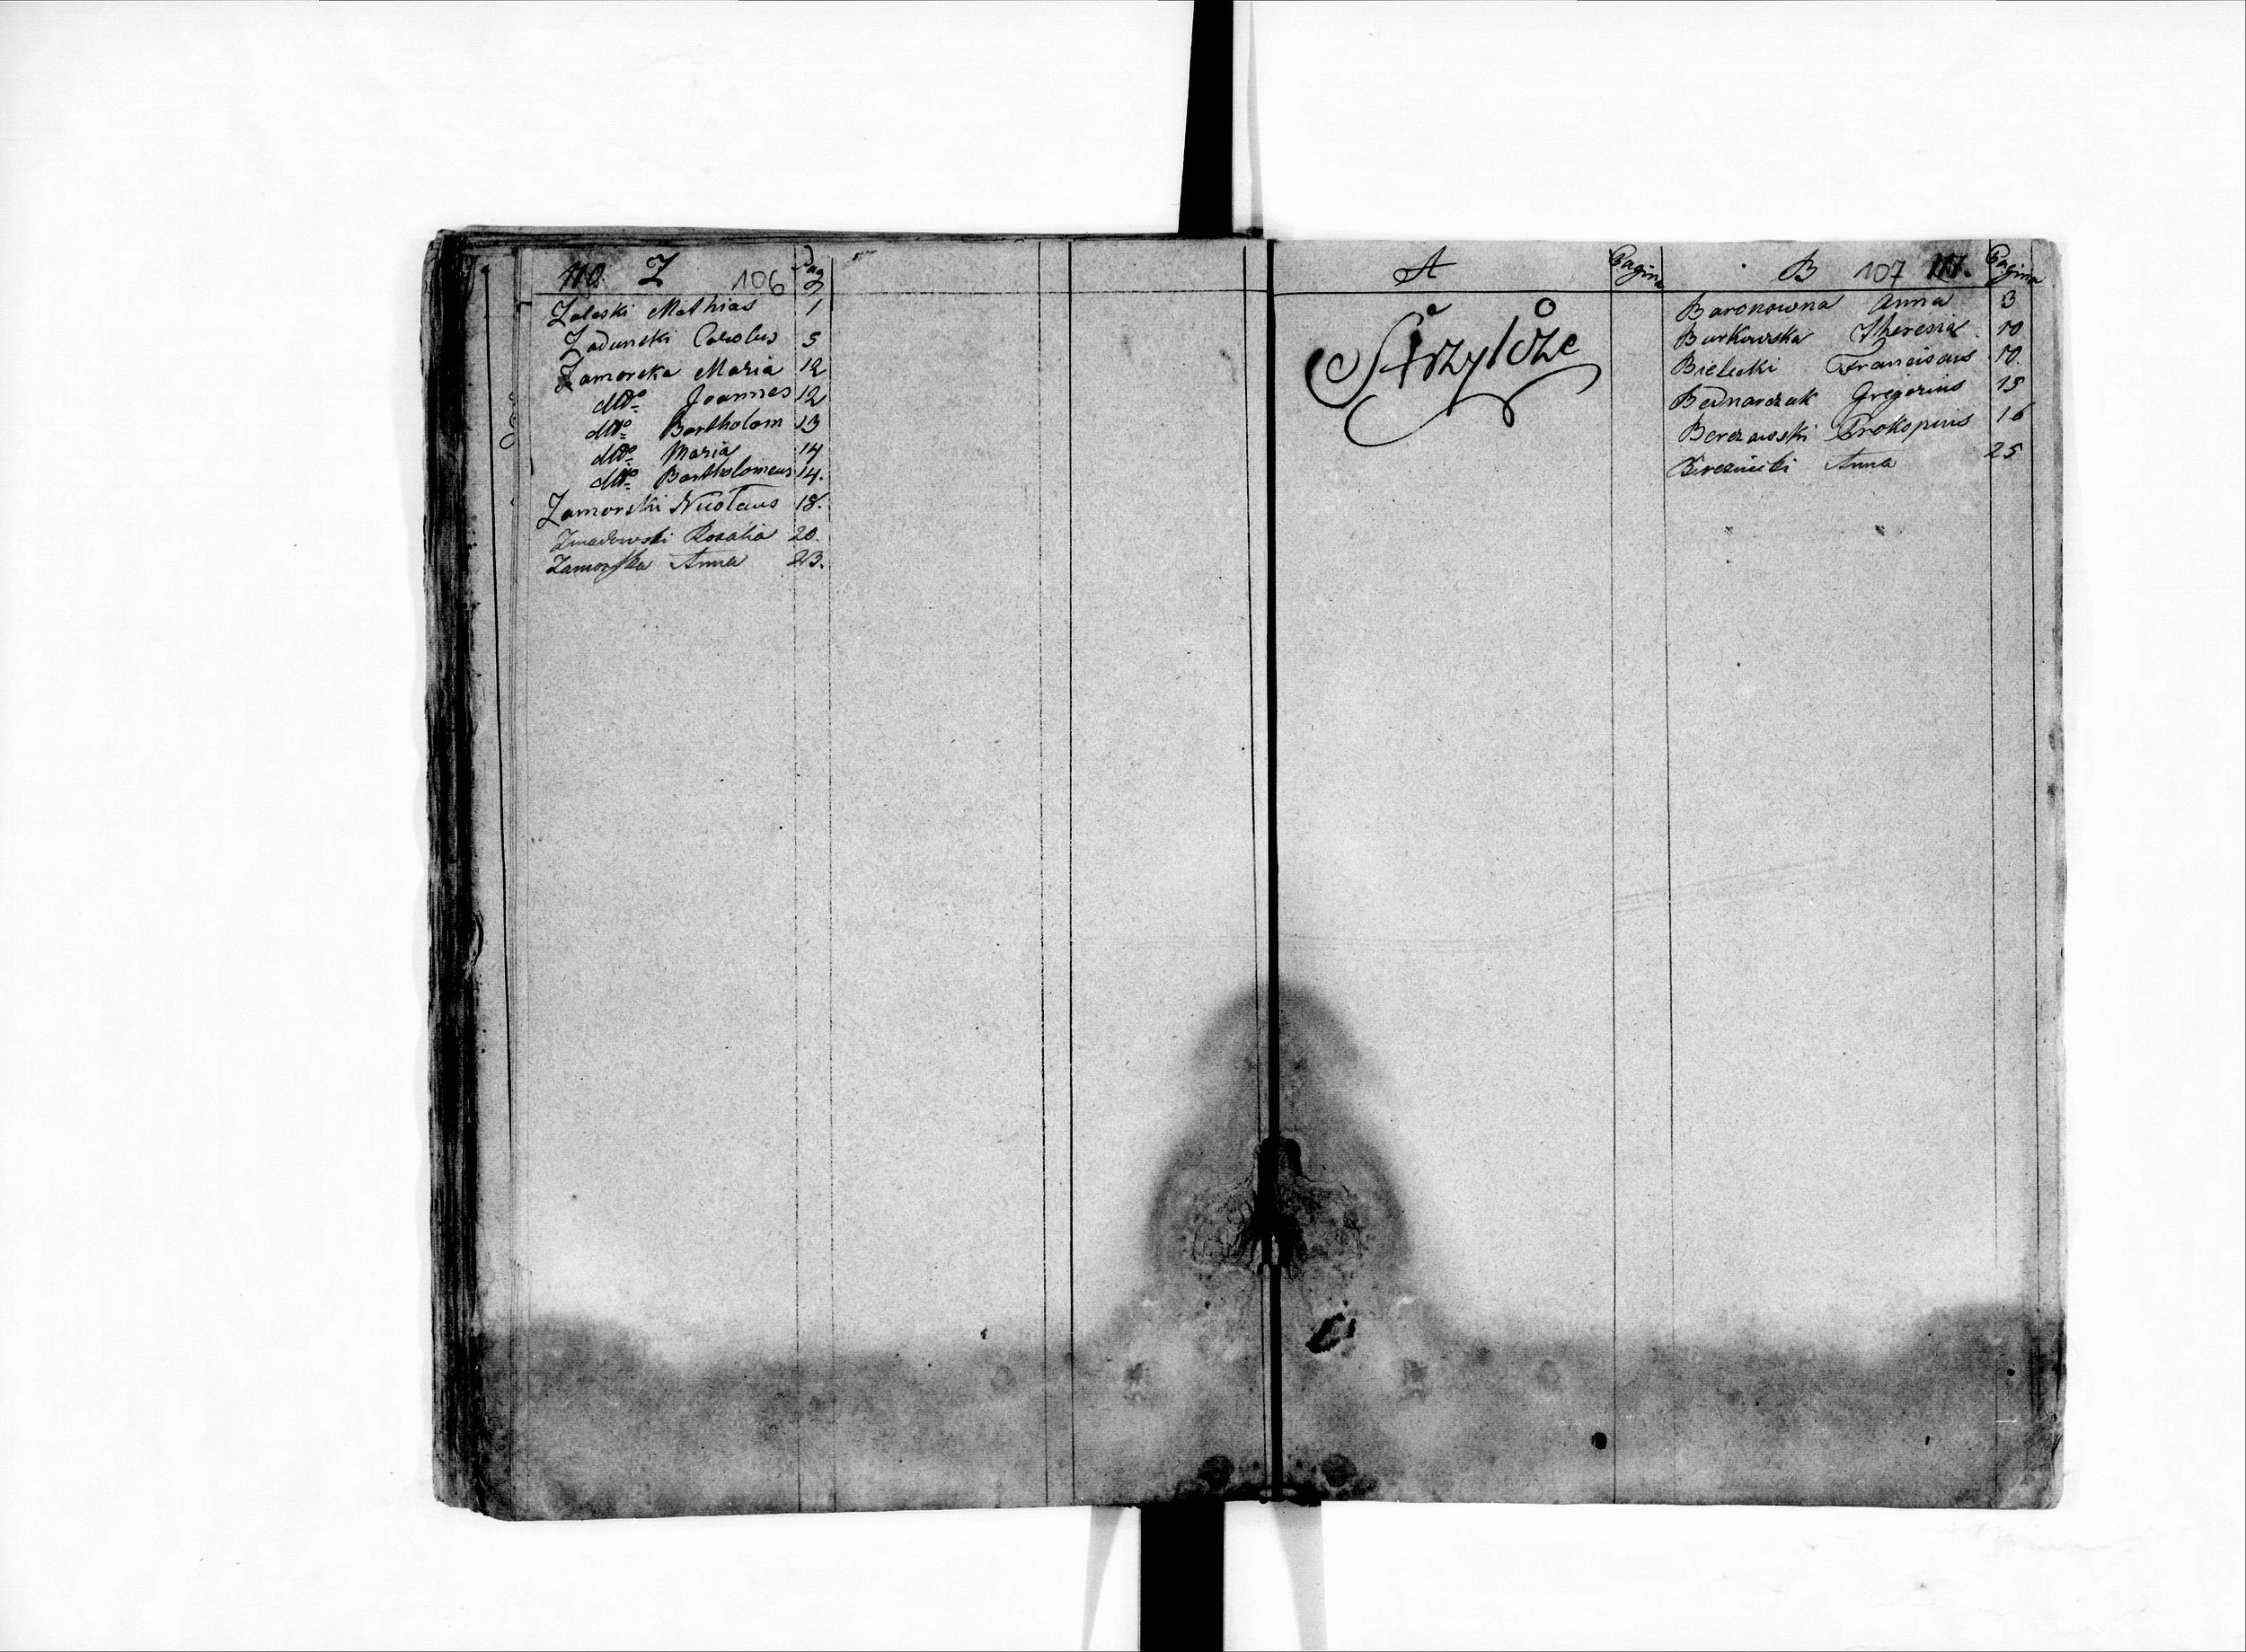 110. Z 106 Pag
Zaleski Mathias 1
Zadunski Carolus 5
Zamorska Maria 12
dtto Joannes 12
dtto Bartholom 13
dtto Maria 14
dtto Bartholomeus 14.
Zamorski Nicolaus 18.
Zmadowski Rosalia 20.
Zamorska Anna 23.
A Pagina
Strzylcze
B 107 111. Pagina
Baronowna Anna 3
Burkowska Theresia 10
Bielecki Franciscus 10.
Bednarczuk Gregorius 15
Berezowski Prokopius 16
Bereznicki Anna 25